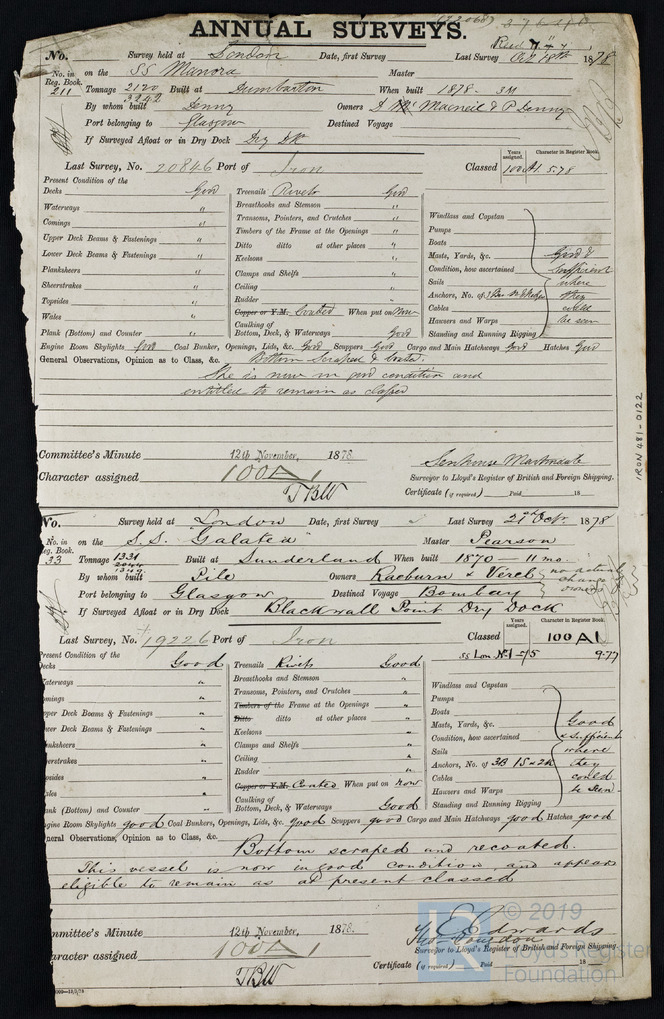 ANNUAL SURVEYS.
No. Survey held at London Date, first Survey Last Survey Oct 18th 1878
No. in Reg. Book. 211 on the SS Manora Master
Tonnage 2120 3242 Built at Dumbarton When built 1878
By whom built Denny Owners D. Macneil & P Denny
Port belonging to Glasgow Destined Voyage
If Surveyed Afloat or in Dry Dock Dry Dk
Years assigned. Character in Register Book.
Last Survey, No. 20846 Port of Iron Classed 100 A1. 5.78
Present Condition of the
Decks Good Treenails Rivets Good
Waterways " Breasthooks and Stemson " Windlass and Capstan
Comings " Transoms, Pointers, and Crutches " Pumps
Upper Deck Beams & Fastenings " Timbers of the Frame at the Openings " Boats
Lower Deck Beams & Fastenings " Ditto ditto at other places " Masts, Yards, &c. Good &
Planksheers " Keelsons " Condition, how ascertained sufficient
Sheerstrakes " Clamps and Shelfs " Sails where
Topsides " Ceiling " Anchors, No. of they
Wales " Rudder " Cables could
Copper or Y.M. Coated When put on Now Hawsers and Warps be seen
Plank (Bottom) and Counter " Caulking of Bottom, Deck, & Waterways Good Standing and Running Rigging
Engine Room Skylights Good Coal Bunker, Openings, Lids, &c. Good Scuppers Good Cargo and Main Hatchways Good Hatches Good
General Observations, Opinion as to Class, &c. Bottom Scraped & Coated.
She is now in good condition and
entitled to remain as classed
Committee's Minute 12th November, 1878.
Character assigned 100A1
Surveyor to Lloyd's Register of British and Foreign Shipping.
TBW
Certificate (if required) Paid 18
IRON 481-0122
No. Survey held at London Date, first Survey Last Survey 21st Oct. 1878
No. in Reg. Book. 33 on the S.S. "Galatea" Master Pearson
Tonnage 1331 2044 Built at Sunderland When built 1870 – 11 mo.
By whom built Pile Owners Raeburn & Verel
Port belonging to Glasgow Destined Voyage Bombay
If Surveyed Afloat or in Dry Dock Blackwall Point Dry Dock
Years assigned. Character in Register Book.
Last Survey, No. 19226 Port of Iron Classed 100 A1
SS Lon No1-75 9-77
Present Condition of the
Decks Good Treenails Rivets Good
Waterways " Breasthooks and Stemson " Windlass and Capstan
omings " Transoms, Pointers, and Crutches " Pumps
pper Deck Beams & Fastenings " Timbers of the Frame at the Openings " Boats
wer Deck Beams & Fastenings " Ditto ditto at other places " Masts, Yards, &c. Good
nksheers " Keelsons " Condition, how ascertained & sufficient
erstrakes " Clamps and Shelfs " Sails where
osides " Ceiling " Anchors, No. of 3B 1S & 2K they
ales " Rudder " Cables could
Copper or Y.M. Coated When put on now Hawsers and Warps be seen.
ank (Bottom) and Counter " Caulking of Bottom, Deck, & Waterways Good Standing and Running Rigging
ngine Room Skylights good Coal Bunkers, Openings, Lids, &c. good Scuppers good Cargo and Main Hatchways good Hatches good
neral Observations, Opinion as to Class, &c.
Bottom scraped and recoated.
This vessel is now in good condition and appears
eligible to remain as at present classed
© 2019
Lloyd's Register
Foundation
mmittee's Minute 12th November, 1878.
aracter assigned 100A1
E Edwards
Surveyor to Lloyd's Register of British and Foreign Shipping.
TBW
Certificate (if required) Paid 18